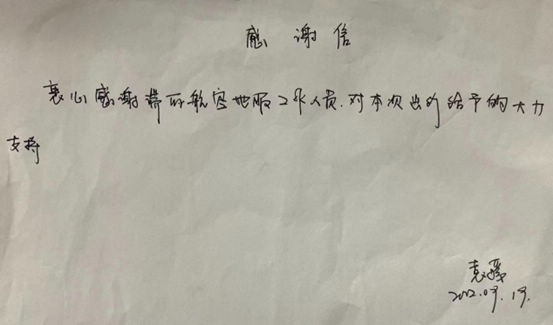 感谢信
衷心感谢瑞丽航空地服工作人员.对本次出行给予的大力
支持
袁
2022.09.19.